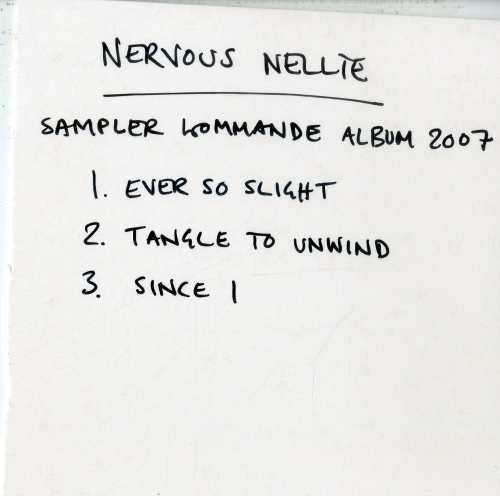 NERVOUS NELLIE
SAMPLER KOMMANDE ALBUM 2007
1. EVER SO SLIGHT
2. TANGLE TO UNWIND
3. SINCE I